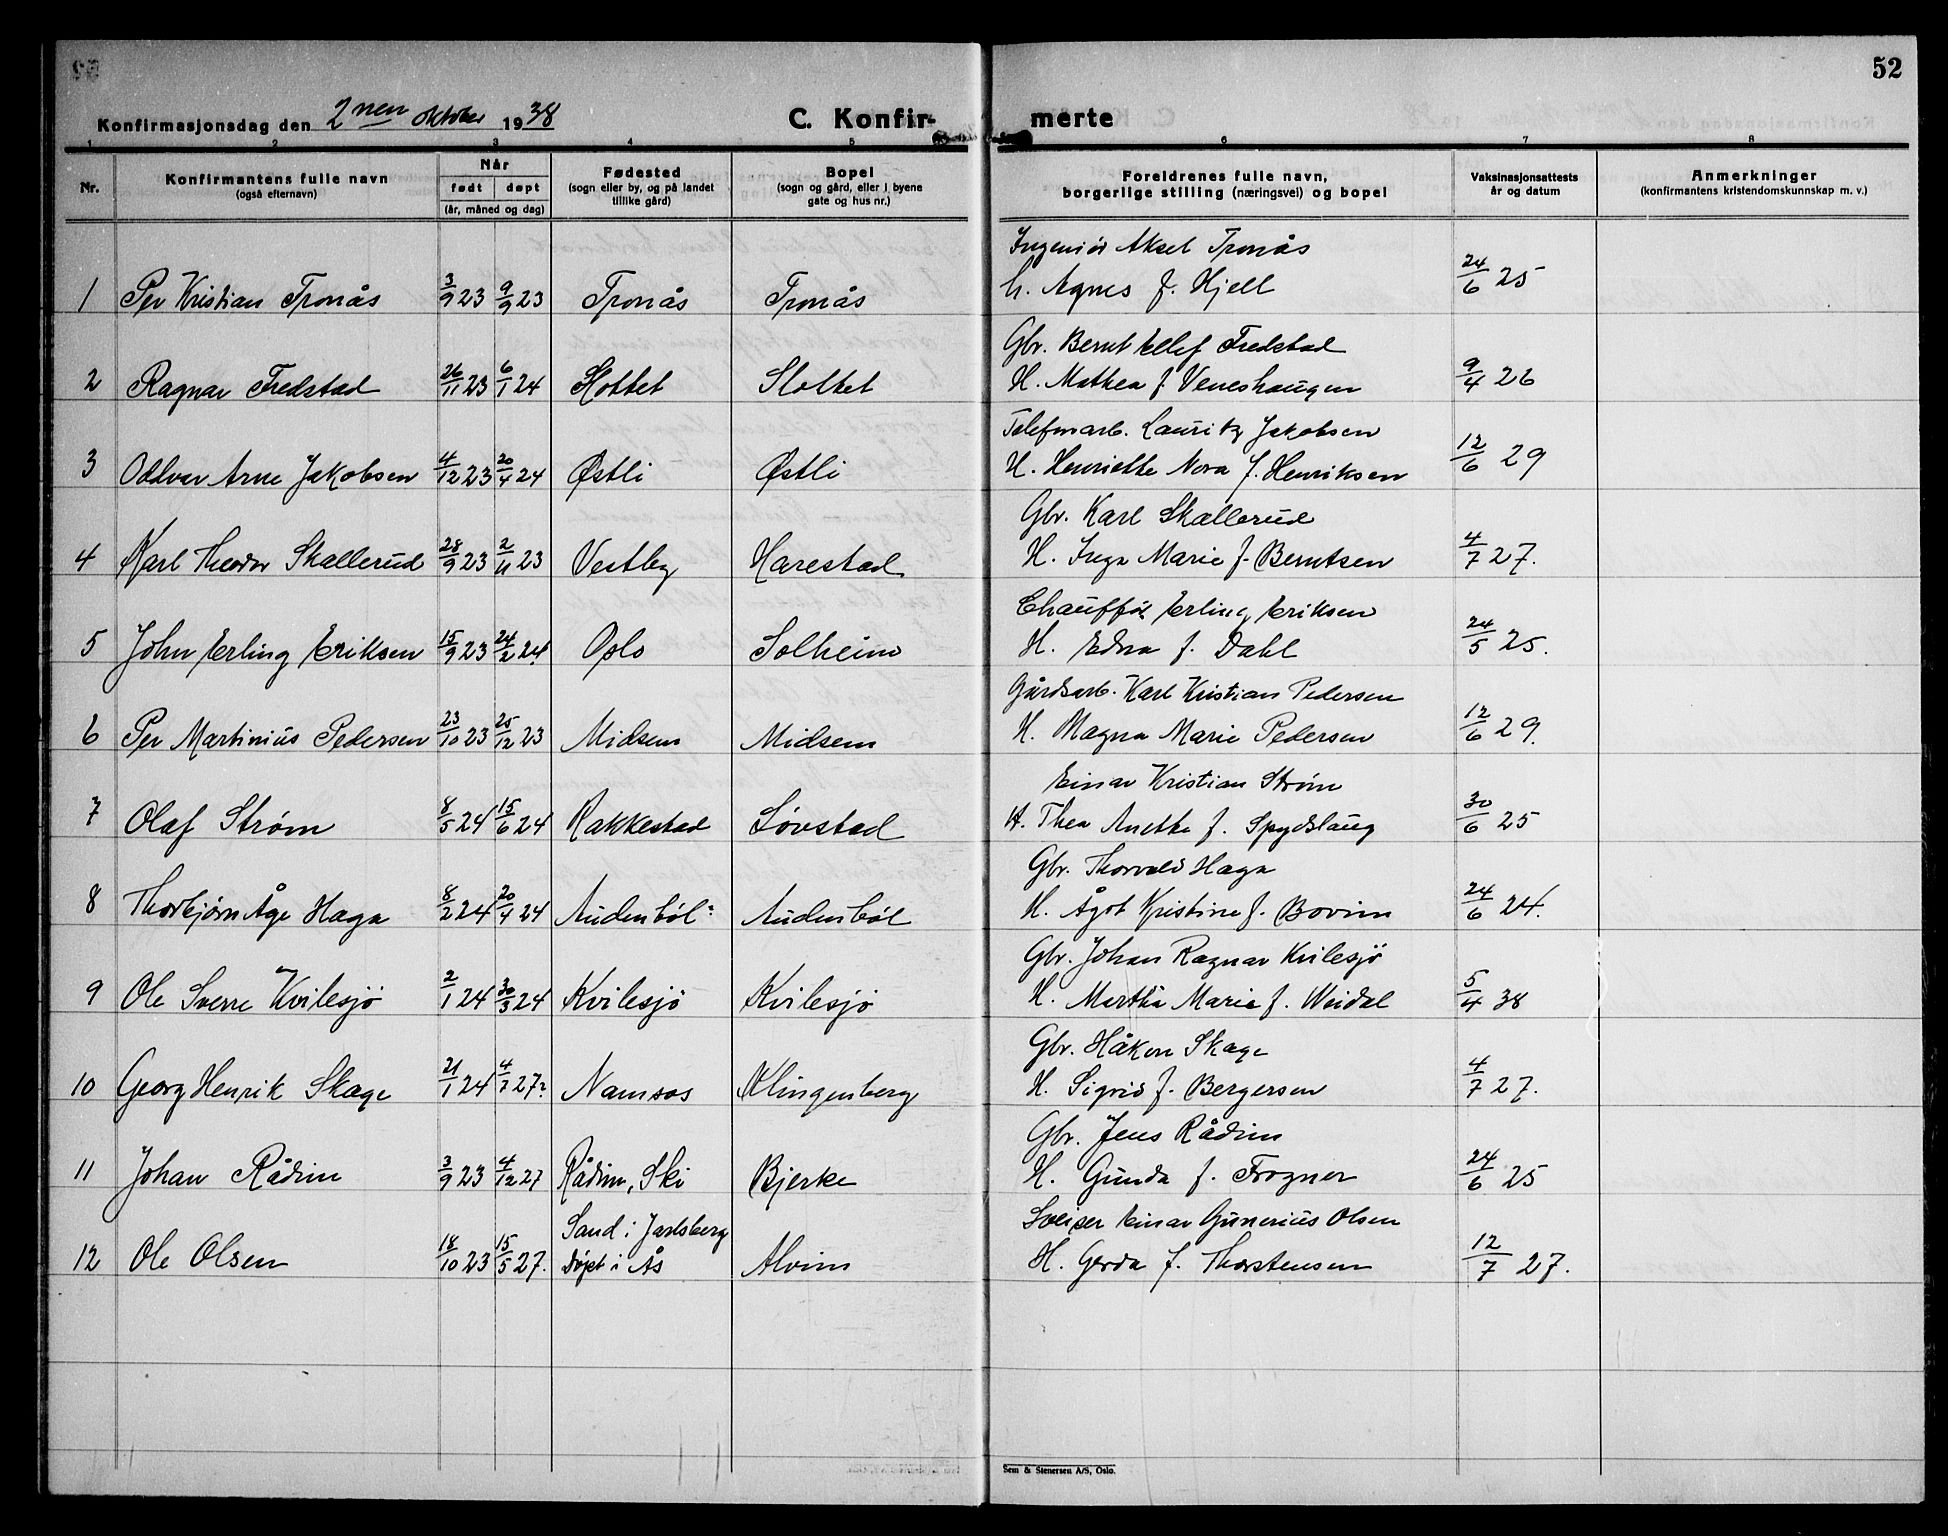 52
Konfirmasjonsdag den 2nen oktober 1938
C. Konfir-
merte
1 2 3 4 5 6 7 8
Nr.
Konfirmantens fulle navn
(også efternavn)
Når
født døpt
(år, måned og dag)
Fødested
(sogn eller by, og på landet
tillike gård)
Bopel
(sogn og gård, eller i byene
gate og hus nr.)
Foreldrenes fulle navn,
borgerlige stilling (næringsvei) og bopel
Vaksinasjonsattests
år og datum
Anmerkninger
(konfirmantens kristendomskunnskap m. v.)
Ingeniør Aksel Tronås
1 Per Kristian Tronås 3/9 23 9/9 23 Tronås Tronås h. Agnes f. Hjell 24/6 25
Gbr. Bernt Ellef Fredstad
2 Ragnar Fredstad 26/11 23 6/1 24 Slottet Slottet H. Mathea f. Veneshaugen 9/4 26
Telefonarb. Lauritz Jakobsen
3 Oddvar Arne Jakobsen 4/12 23 20/4 24 Østli Østli H. Henriette Nora f. Henriksen 12/6 29
Gbr. Karl Skallerud
4 Karl Theodor Skallerud 28/9 23 2/11 23 Vestby Harestad H. Inga Marie f. Berntsen 4/7 27.
Chauffør Erling Eriksen
5 John Erling Eriksen 15/9 23 24/2 24 Oslo Solheim H. Edna f. Dahl 24/5 25.
Gårdsarb. Karl Kristian Pedersen
6 Per Martinius Pedersen 23/10 23 25/12 23 Midsem Midsem H. Magna Marie Pedersen 12/6 29.
Einar Kristian Strøm
7 Olaf Strøm 8/5 24 15/6 24 Rakkestad Løvstad H. Thea Anetta f. Spydslaug 30/6 25
Gbr. Thorvald Haga
8 Thorbjørn Åge Haga 8/2 24 20/4 24 Audenböl Audenböl H. Ågot Kristine f. Bovim 24/6 24.
Gbr. Johan Ragnar Kvilesjö
9 Ole Sverre Kvilesjö 2/1 24 30/3 24 Kvilesjö Kvilesjö H. Martha Marie f. Weidal 5/4 38
Gbr. Håkon Skage
10 Georg Henrik Skage 21/1 24 4/7 27? Namsos Klingenberg H. Sigrid f. Bergersen 4/7 27.
Gbr. Jens Rådim
11 Johan Rådim 3/9 23 4/12 27 Rådim, Ski Bjerke H. Gunda f. Frogner 24/6 25
Sand i Jarlsberg Sveiser Einar Gunerius Olsen
12 Ole Olsen 18/10 23 15/5 27. Døpt i Ås Alvim H. Gerda f. Thorstensen 12/7 27.
Sem & Stenersen A/S, Oslo.